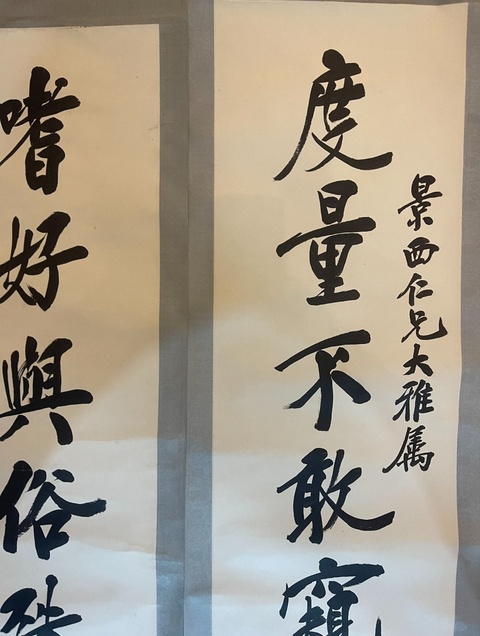 景西仁兄大雅属
度量不敢窺
嗜好與俗